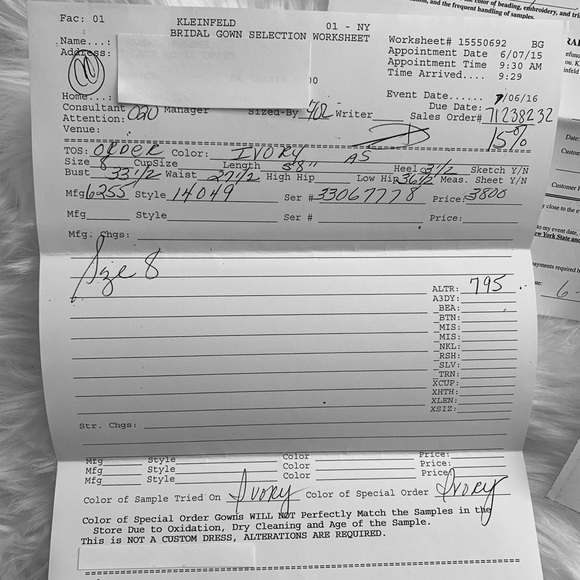 Fac: 01 KLEINFELD 01 - NY
BRIDAL GOWN SELECTION WORKSHEET
Name...: Worksheet# 15550692 BG
Address: Appointment Date 6/07/15
Appointment Time 9:30 AM
Time Arrived.... 9:29
Home...: Event Date...... 7/06/16
Consultant 020 Manager Sized-By 702 Writer Due Date:
Attention: Sales Order# 71238232
Venue: 15%
TOS: ORDER Color: IVORY AS
Size 8 CupSize Length 5'8" Heel 3 1/2 Sketch Y/N
Bust 33 1/2 Waist 27 1/2 High Hip Low Hip 36 1/2 Meas. Sheet Y/N
Mfg 6255 Style 14049 Ser # 33067778 Price: 3800
Mfg Style Ser # Price:
Mfg. Chgs:
Size 8
ALTR: 795
A3DY:
BEA:
BTN:
MIS:
MIS:
NKL:
RSH:
SLV:
TRN:
XCUP:
XHTH:
XLEN:
XSIZ:
Str. Chgs:
Mfg Style Color Price:
Mfg Style Color Price:
Mfg Style Color Price:
Color of Sample Tried On Ivory Color of Special Order Ivory
Color of Special Order Gowns WILL NOT Perfectly Match the Samples in the
Store Due to Oxidation, Dry Cleaning and Age of the Sample.
This is NOT A CUSTOM DRESS, ALTERATIONS ARE REQUIRED.
color of beading, embroidery, and tri
, and the frequent handling of samples.
Customer
Customer
to my event date,
New York State and
payments required b
6-